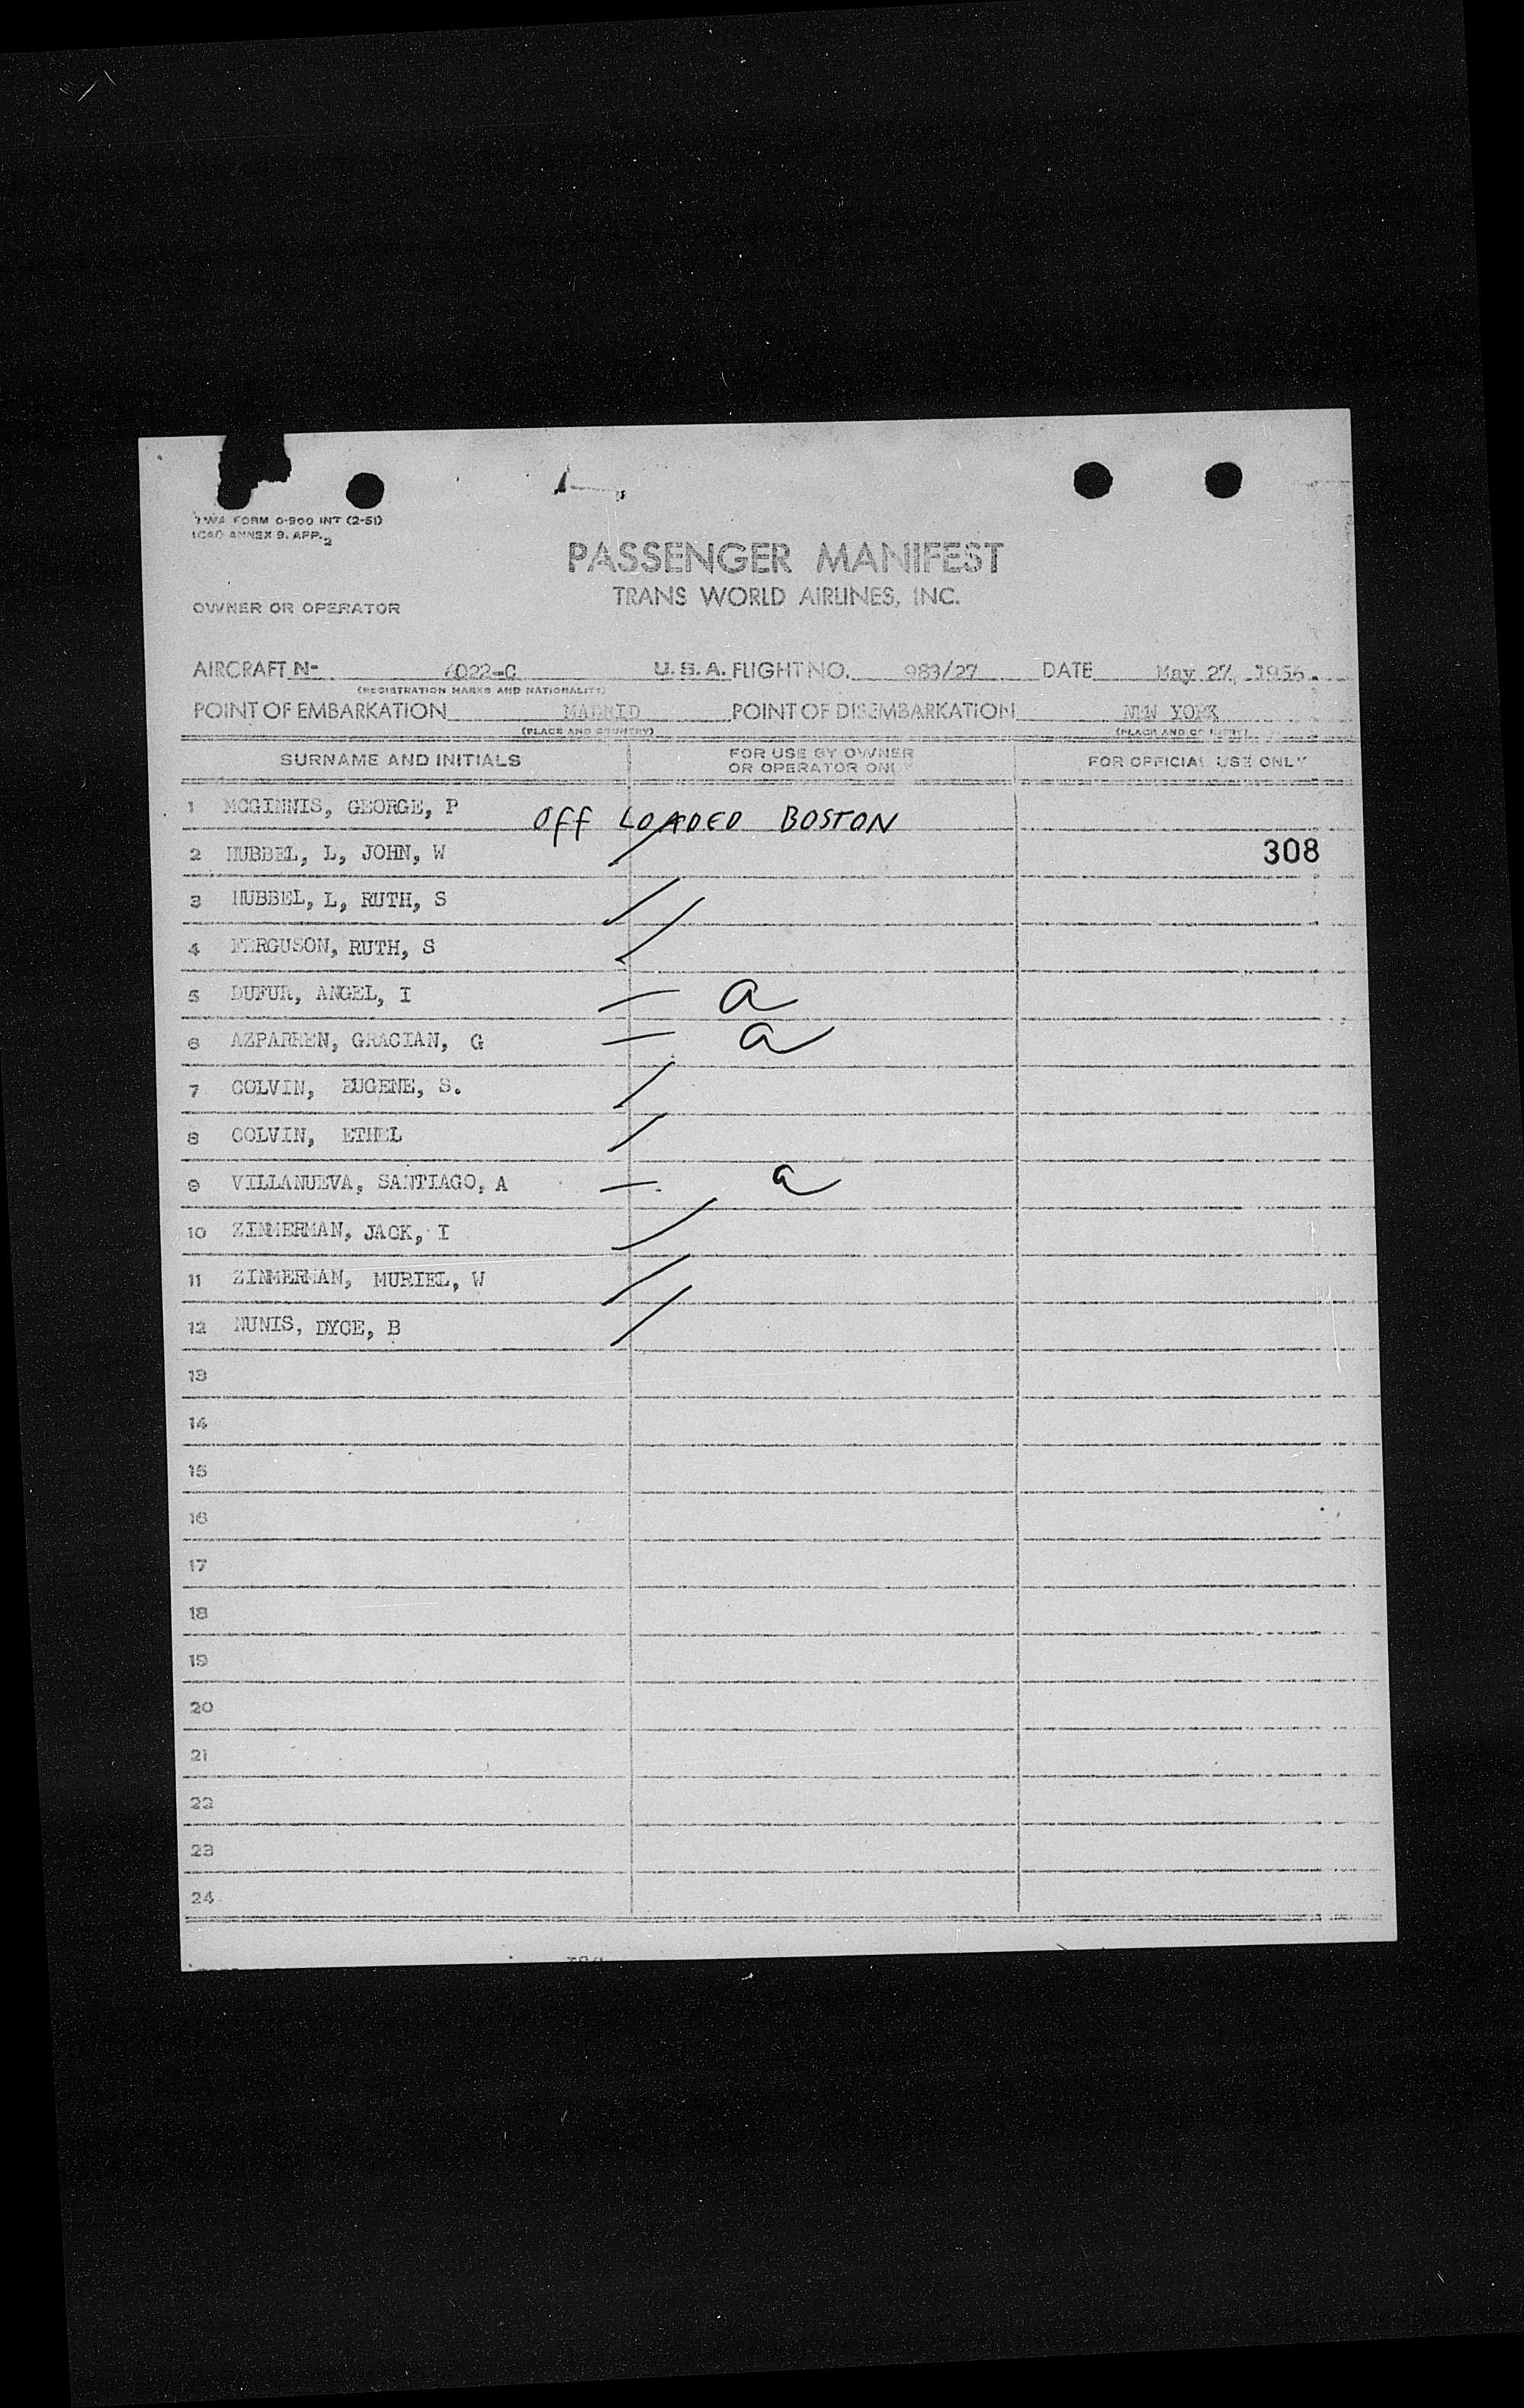 TWA FORM O-900 INT (2-51)
ICAO ANNEX 9. APP. 2
PASSENGER MANIFEST
TRANS WORLD AIRLINES, INC.
OWNER OR OPERATOR
AIRCRAFT N- 7022-C U. S. A. FLIGHT NO. 983/27 DATE May 27, 1956
(REGISTRATION MARKS AND NATIONALITY)
POINT OF EMBARKATION MADRID POINT OF DISEMBARKATION NEW YORK
(PLACE AND COUNTRY) (PLACE AND COUNTRY)
SURNAME AND INITIALS FOR USE BY OWNER OR OPERATOR ONLY FOR OFFICIAL USE ONLY
1 MCGINNIS, GEORGE, P OFF LOADED BOSTON
2 HUBBEL, L, JOHN, W 308
3 HUBBEL, L, RUTH, S
4 FERGUSON, RUTH, S
5 DUFUR, ANGEL, I — a
6 AZPARREN, GRACIAN, G — a
7 COLVIN, EUGENE, S.
8 COLVIN, ETHEL
9 VILLANUEVA, SANTIAGO, A — a
10 ZIMMERMAN, JACK, I
11 ZIMMERMAN, MURIEL, W
12 NUNIS, DYCE, B
13
14
15
16
17
18
19
20
21
22
23
24